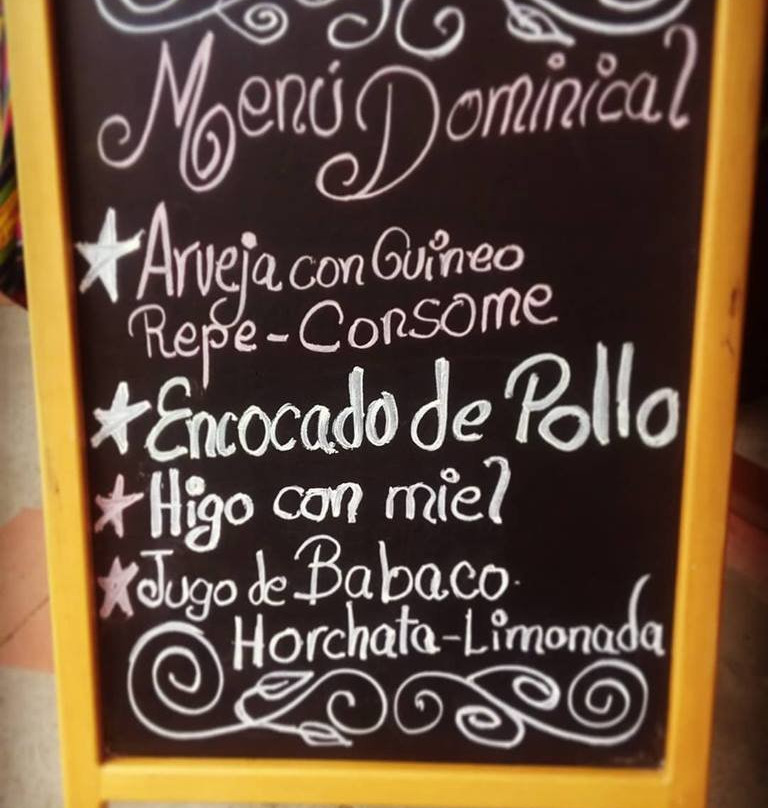 Menú Dominical
Arveja con Guineo
Repe-Consome
Encocado de Pollo
Higo con miel
Jugo de Babaco.
Horchata-Limonada